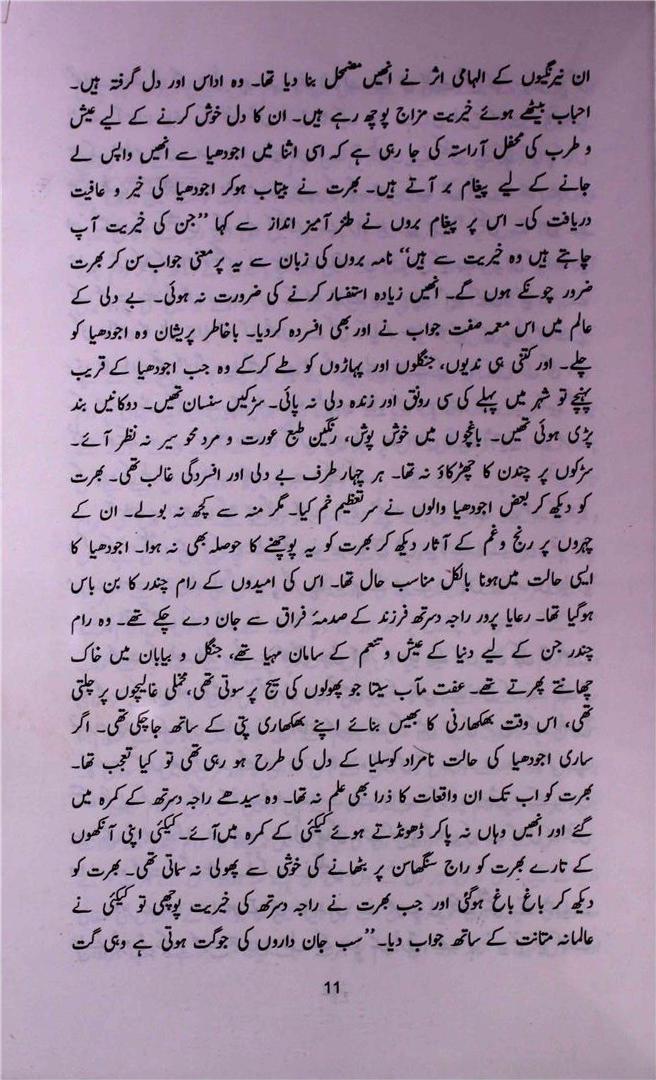 ان نیرنگیوں کے الہامی اثر نے انھیں مضمحل بنا دیا تھا۔ وہ اداس اور دل گرفتہ ہیں۔
احباب بیٹھے ہوئے خیریت مزاج پوچھ رہے ہیں۔ ان کا دل خوش کرنے کے لیے عیش
و طرب کی محفل آراستہ کی جا رہی ہے کہ اسی اثنا میں اجودھیا سے انھیں واپس لے
جانے کے لیے پیغام بر آتے ہیں۔ بھرت نے بیتاب ہوکر اجودھیا کی خیر و عافیت
دریافت کی۔ اس پر پیغام بروں نے طنز آمیز انداز سے کہا ’’جن کی خیریت آپ
چاہتے ہیں وہ خیریت سے ہیں‘‘ نامہ بروں کی زبان سے یہ پرمعنی جواب سن کر بھرت
ضرور چونکے ہوں گے۔ انھیں زیادہ استفسار کرنے کی ضرورت نہ ہوئی۔ بے دلی کے
عالم میں اس معمہ صفت جواب نے اور بھی افسردہ کردیا۔ باخاطر پریشان وہ اجودھیا کو
چلے۔ اور کتنی ہی ندیوں، جنگلوں اور پہاڑوں کو طے کرکے وہ جب اجودھیا کے قریب
پہنچے تو شہر میں پہلے کی سی رونق اور زندہ دلی نہ پائی۔ سڑکیں سنسان تھیں۔ دوکانیں بند
پڑی ہوئی تھیں۔ باغچوں میں خوش پوش، رنگین طبع عورت و مرد محو سیر نہ نظر آئے۔
سڑکوں پر چندن کا چھڑکاؤ نہ تھا۔ ہر چہار طرف بے دلی اور افسردگی غالب تھی۔ بھرت
کو دیکھ کر بعض اجودھیا والوں نے سر تعظیم خم کیا۔ مگر منہ سے کچھ نہ بولے۔ ان کے
چہروں پر رنج و غم کے آثار دیکھ کر بھرت کو یہ پوچھنے کا حوصلہ بھی نہ ہوا۔ اجودھیا کا
ایسی حالت میں ہونا بالکل مناسب حال تھا۔ اس کی امیدوں کے رام چندر کا بن باس
ہوگیا تھا۔ رعایا پرور راجہ دسرتھ فرزند کے صدمۂ فراق سے جان دے چکے تھے۔ وہ رام
چندر جن کے لیے دنیا کے عیش و تنعم کے سامان مہیا تھے، جنگل و بیابان میں خاک
چھانتے پھرتے تھے۔ عفت مآب سیتا جو پھولوں کی سیج پر سوتی تھی، مخملی غالیچوں پر چلتی
تھی، اس وقت بھکھارنی کا بھیس بنائے اپنے بھکھاری پتی کے ساتھ جاچکی تھی۔ اگر
ساری اجودھیا کی حالت نامراد کوسلیا کے دل کی طرح ہو رہی تھی تو کیا تعجب تھا۔
بھرت کو اب تک ان واقعات کا ذرا بھی علم نہ تھا۔ وہ سیدھے راجہ دسرتھ کے کمرہ میں
گئے اور انھیں وہاں نہ پاکر ڈھونڈتے ہوئے کیکئی کے کمرہ میں آئے۔ کیکئی اپنی آنکھوں
کے تارے بھرت کو راج سنگھاسن پر بٹھانے کی خوشی سے پھولی نہ سماتی تھی۔ بھرت کو
دیکھ کر باغ باغ ہوگئی اور جب بھرت نے راجہ دسرتھ کی خیریت پوچھی تو کیکئی نے
عالمانہ متانت کے ساتھ جواب دیا۔ ’’سب جان داروں کی جوگت ہوتی ہے وہی گت
11